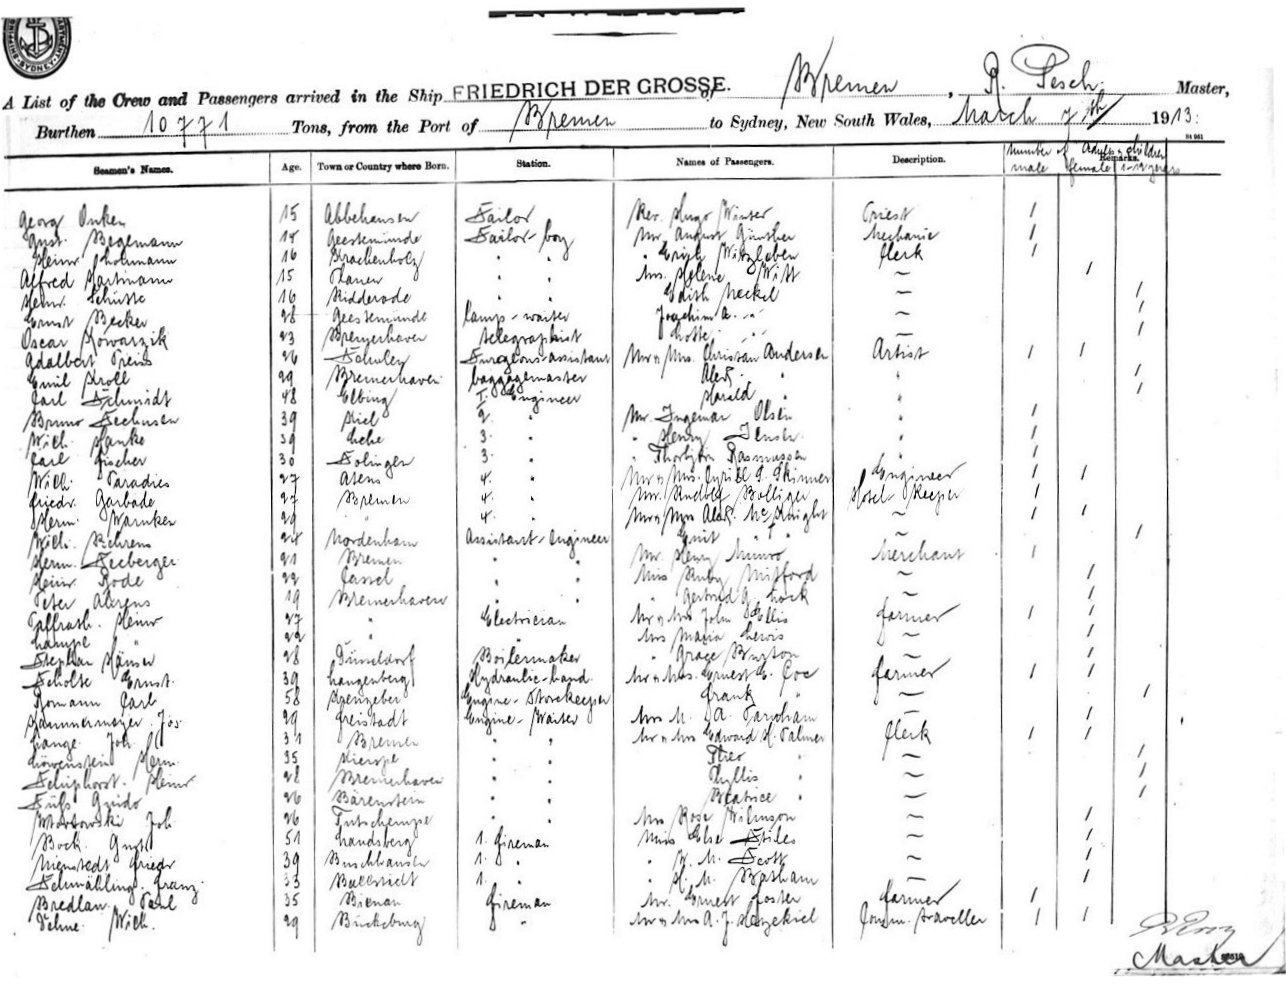 SHIPPING SYDNEY
A List of the Crew and Passengers arrived in the Ship FRIEDRICH DER GROSSE. of Bremen, P. Pesch Master,
Burthen 10771 Tons, from the Port of Bremen to Sydney, New South Wales, March 7th 1913.
St 961
Seamen's Names. Age. Town or Country where Born. Station. Names of Passengers. Description. Number of Adults & children Remarks.
male female 1-12 years
Georg Onken 15 Abbehausen Sailor Rev. Hugo Winter Priest 1
Gust. Begemann 14 Geestemünde Sailor-boy Mr. August Günther Mechanic 1
Heinr. Lohmann 16 Krachenholz " " " Erich Witzleben Clerk 1
Alfred Hartmann 15 Plauen " " Mrs. Helene Witt — 1
Heinr. Schütte 16 Ridderade " " Edith Meckel — 1
Ernst Becker 28 Geestemünde lamp-waiter Joachim a. " — 1
Oscar Kowarzik 23 Bremerhaven telegraphist Lotte " — 1
Adalbert Preiss 26 Schuley Surgeons-assistant Mr & Mrs. Christian Andersen Artist 1 1
Emil Kroll 29 Bremerhaven baggagemaster Alex. " " 1
Carl Schmidt 48 Elbing I. Engineer Harald " " 1
Bruno Sechusen 39 Kiel 2. " Mr. Ingemar Olsen " 1
Wilh. Hanke 39 Lehe 3. " " Henry Jensen " 1
Carl Fischer 30 Solingen 3. " " Rasmussen " 1
Wilh. Paradies 27 Atens 4. " Mr & Mrs. Cyrill G. Skinner Engineer 1 1
Friedr. Garbade 27 Bremen 4. " Mr. Rudolf Bolliger Hotel-Keeper 1
Herm. Warnken 29 " 4. " Mr & Mrs Alex. McKnight — 1 1
Wilh. Behrens 24 Nordenham Assistant-Engineer " " 1
Herm. Seeberger 21 Bremen " " Mr. Henry Munro Merchant 1
Heinr. Rode 22 Cassel " " Miss Ruby Mitford — 1
Peter Ahrens 19 Bremerhaven " " " Gertrud G. Lock — 1
Heinr 27 " Electrician Mr & Mrs John Ellis farmer 1 1
Lampe " 22 " " Mrs Maria Lewis — 1
Stephan Häuser 28 Düsseldorf Boilermaker " Grace Burton — 1
Scholte Ernst. 39 Langenberg Hydraulic-hand Mr & Mrs. Ernest E. Coe farmer 1 1
Romann Carl 58 Engine-Storekeeper Frank " — 1
Hammermayer Jos. 29 Freistadt Engine-Waiter Mrs M. A. Farnham — 1
Lange Joh. 31 Bremen " " Mr & Mrs Edward H. Palmer Clerk 1 1
Löwenstein Herm. 35 Kierspe " " Theo " — 1
Schiphorst. Heinr 28 Bremerhaven " " Phyllis " — 1
Süfs Guido 26 Bärenstein " " Beatrice " — 1
Joh 26 " " Mrs Rose Wilmson — 1
Bock. Gust 51 Landsberg 1. fireman Miss Else Stiles — 1
Nienstedt Friedr 39 Buschhausen 1. " " W. M. Scott — 1
Schmähling. Franz. 33 Ballstädt 1. " " H. M. Batham — 1
Bredlau. Paul 35 Bienau fireman Mr. Ernest Foster farmer 1
Dehne. Wilh. 29 Bückeburg " Mr & Mrs A. J. Hezekiel Comm. traveller 1 1
Master